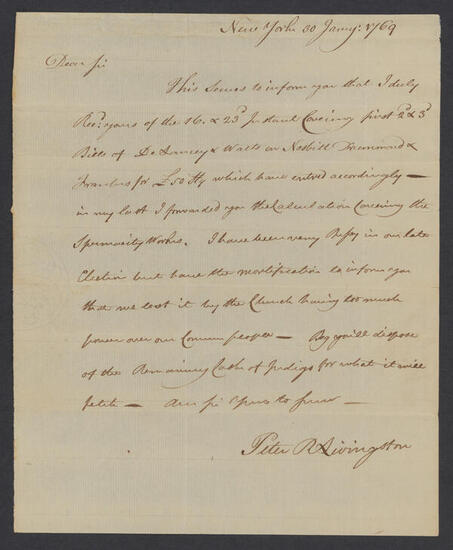 New York 30 Jany: 1769
Dear Sir
This Serves to inform you that I duly
Recd: yours of the 16. & 23d Instant Covering first 2d & 3d
Bills of De Lancey & Watts on Nesbitt Drummond &
Franks for £50 Stg which have entred accordingly —
in my last I forwarded you the Calculation Covering the
Spermacity Works. I have been very Busy in our late
Election but have the mortification to inform you
that we lost it by the Church having too much
power over our Common people — Beg youll dispose
of the Remaining Cask of Indigo for what it will
fetch — Am Sir Yours to Serve —
Peter R Livingston